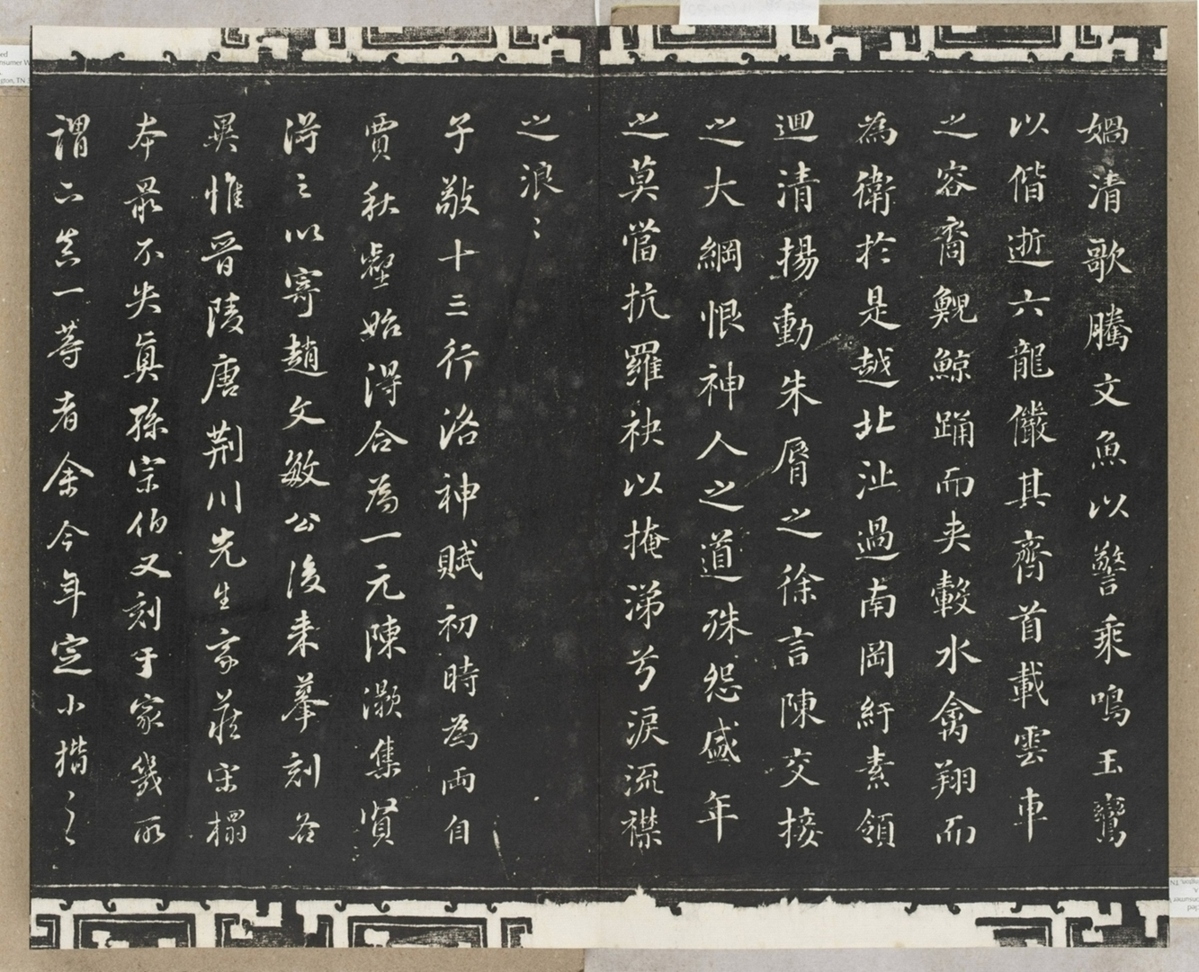 媧清歌騰文魚以警乘鳴玉鸞
以偕逝六龍儼其齊首載雲車
之容裔鯢鯨踊而夾轂水禽翔而
為衛於是越北沚過南岡紆素領
迴清揚動朱脣之徐言陳交接
之大綱恨神人之道殊怨盛年
之莫當抗羅袂以掩涕兮淚流襟
之浪〻
子敬十三行洛神賦初時為兩自
賈秋壑始得合為一元陳灝集賢
得之以寄趙文敏公後来摹刻各
異惟晉陵唐荊川先生家藏宋榻
本最不失真孫宗伯又刻于家幾所
謂下真一等者余今年定小楷之